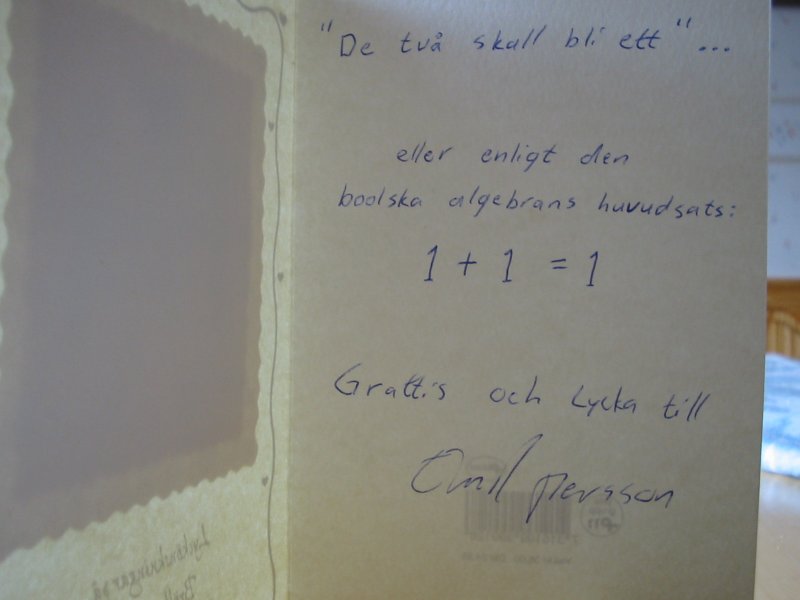 "De två skall bli ett"...
eller enligt den
boolska algebrans huvudsats:
1 + 1 = 1
Grattis och Lycka till
Emil Persson
Lyckönskningar på